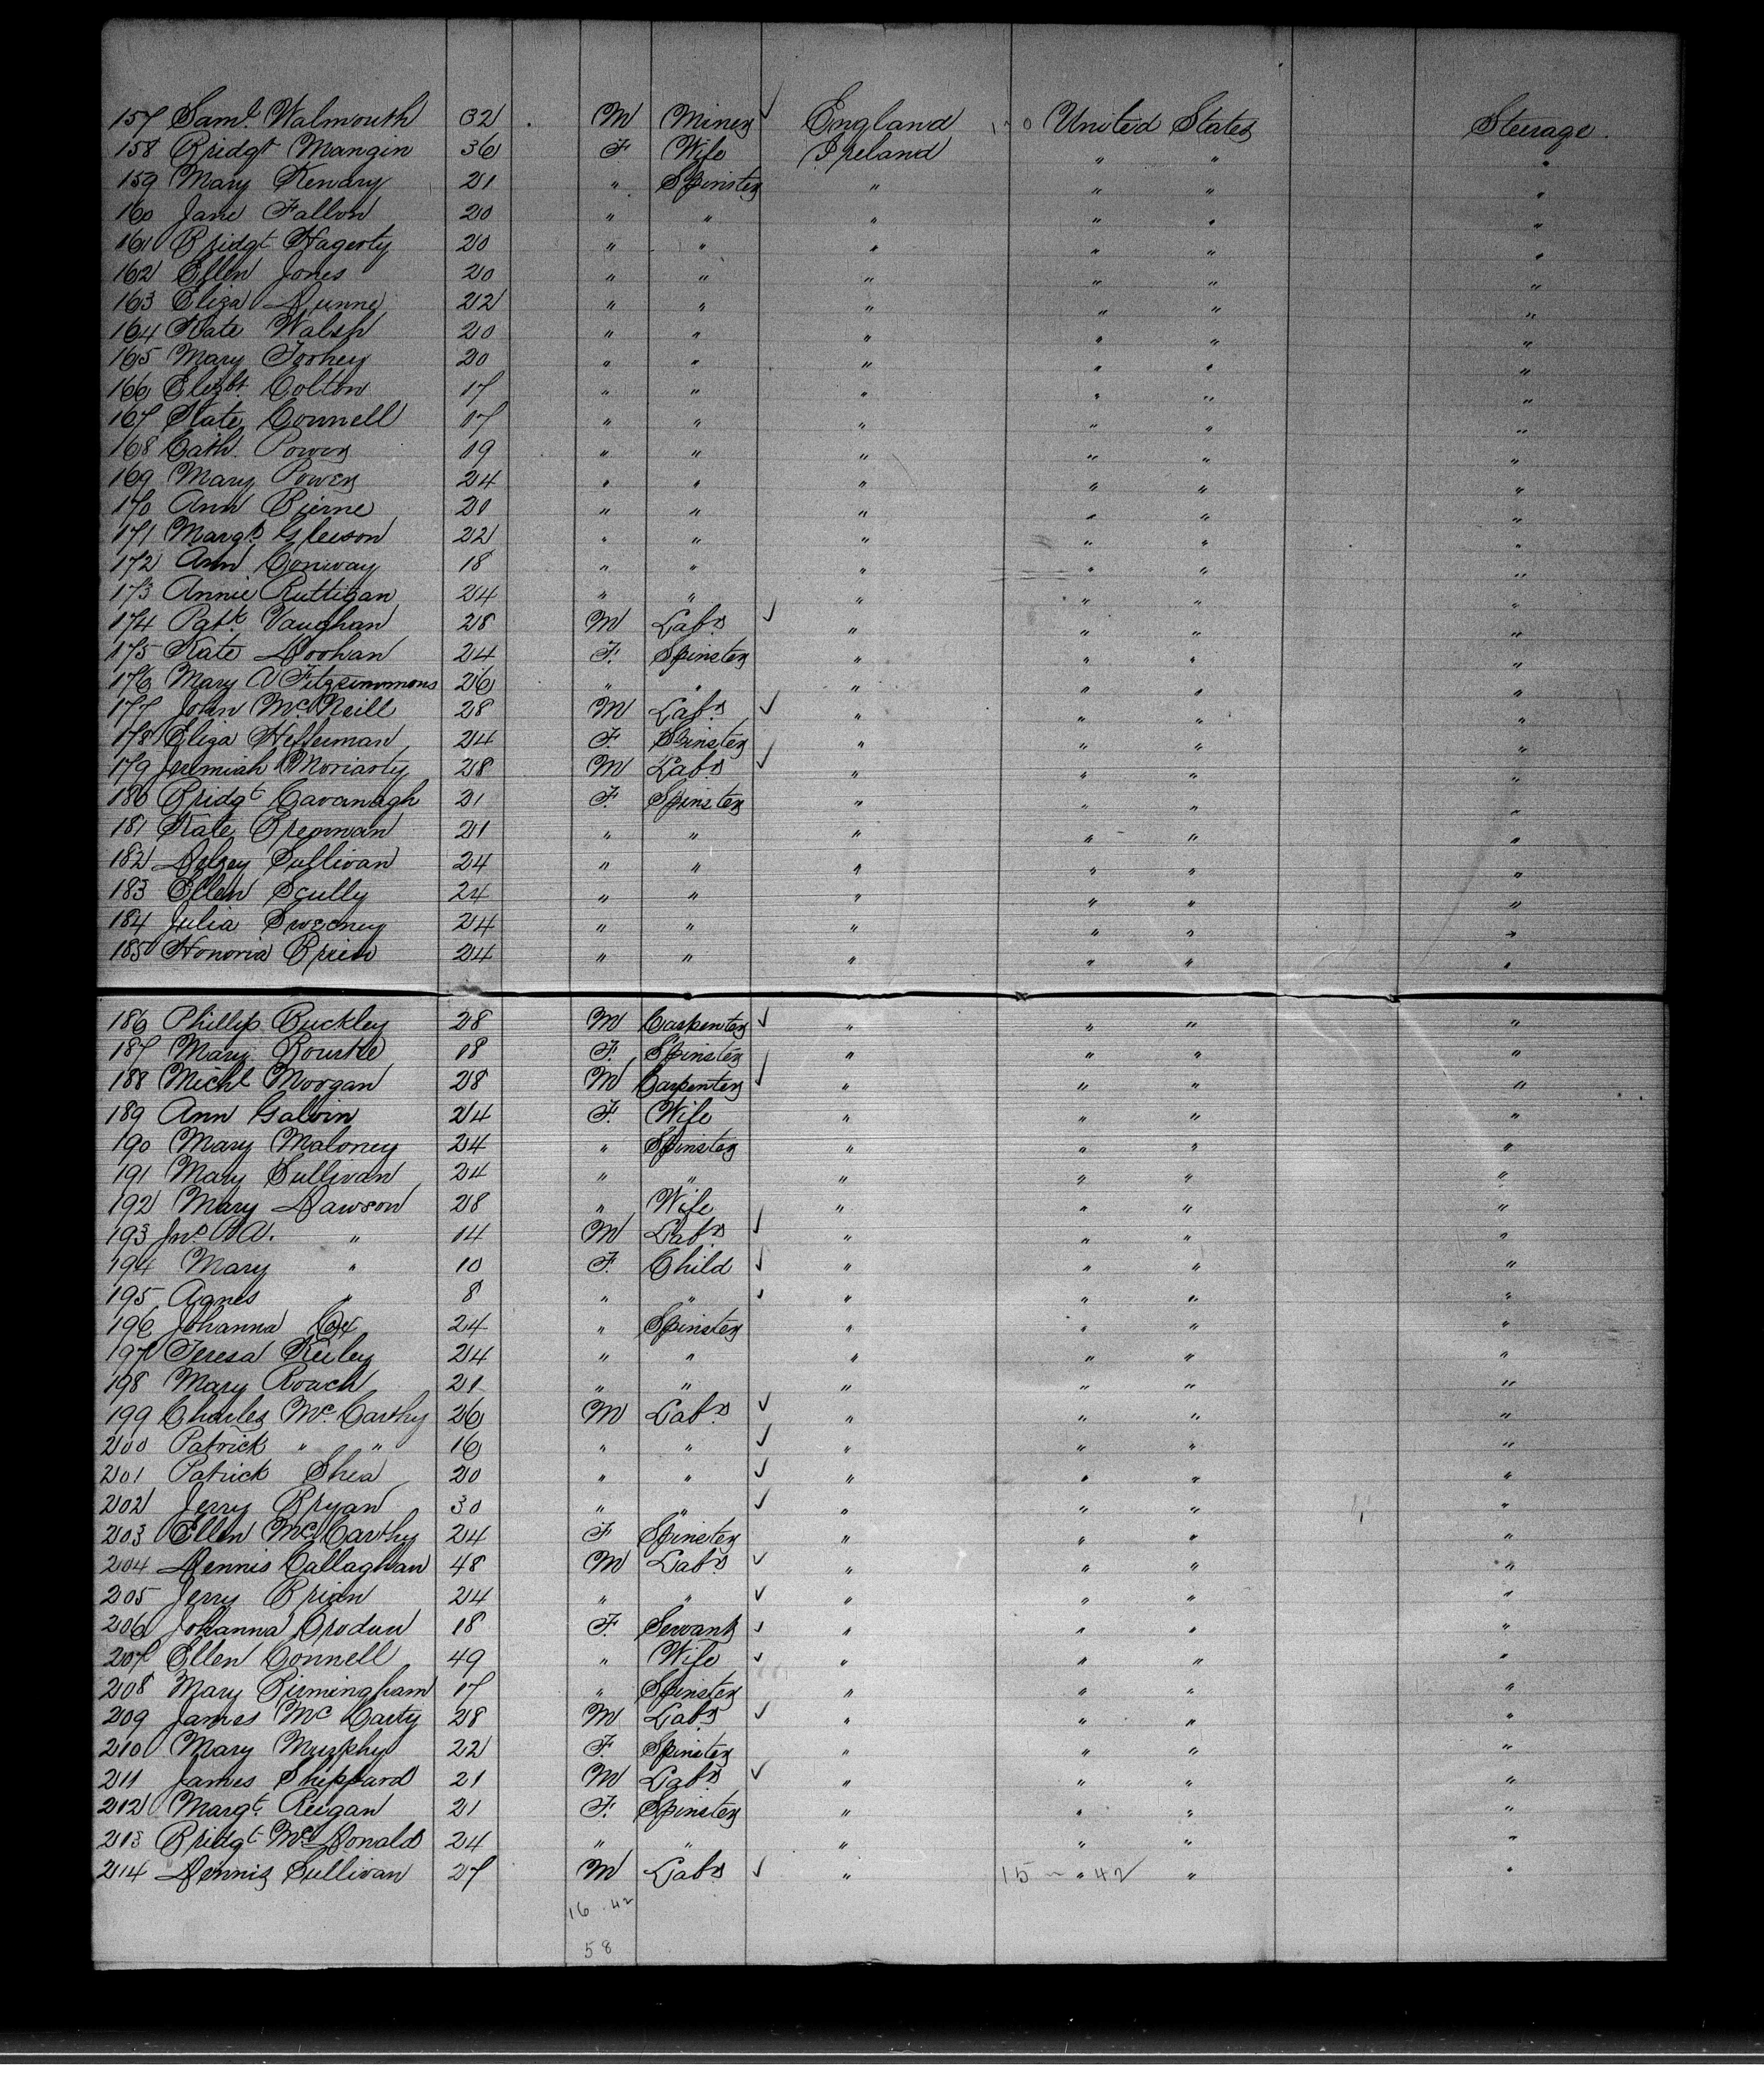 157 Saml. Walmouth 32 M Miner ✓ England United States Steerage.
158 Bridgt Mangin 36 F Wife Ireland " " "
159 Mary Kenary 21 " Spinster " " " "
160 Jane Fallon 20 " " " " " "
161 Bridgt Hagerty 20 " " " " " "
162 Ellen Jones 20 " " " " " "
163 Eliza Dunne 22 " " " " " "
164 Kate Walsh 20 " " " " " "
165 Mary Toohey 20 " " " " " "
166 Elizbt. Colton 17 " " " " " "
167 Kate Connell 17 " " " " " "
168 Cath. Power 19 " " " " " "
169 Mary Power 24 " " " " " "
170 Ann Bierne 20 " " " " " "
171 Margt. Gleeson 22 " " " " " "
172 Ann Conway 18 " " " " " "
173 Annie Ruttigan 24 " " " " " "
174 Patk. Vaughan 28 M Labr ✓ " " " "
175 Kate Doohan 24 F. Spinster " " " "
176 Mary A Fitzsimmons 26 " " " " " "
177 John McNeill 28 M Labr ✓ " " " "
178 Eliza Heffernan 24 F. Spinster " " " "
179 Jeremiah Moriarty 28 M Labr ✓ " " " "
180 Bridgt Cavanagh 21 F. Spinster " " " "
181 Kate Brennan 21 " " " " " "
182 Sullivan 24 " " " " " "
183 Ellen Scully 24 " " " " " "
184 Julia Sweeney 24 " " " " " "
185 Honoria Brien 24 " " " " " "
186 Phillip Buckley 28 M Carpenter ✓ " " " "
187 Mary Rourke 18 F. Spinster " " " "
188 Michl Morgan 28 M Carpenter ✓ " " " "
189 Ann Galvin 24 F. Wife " " " "
190 Mary Maloney 24 " Spinster " " " "
191 Mary Sullivan 24 " " " " " "
192 Mary Dawson 28 " Wife " " " "
193 Jno. " 14 M Labr ✓ " " " "
194 Mary " 10 F. Child ✓ " " " "
195 Agnes " 8 " " ✓ " " " "
196 Johanna Cox 24 " Spinster " " " "
197 Teresa Keiley 24 " " " " " "
198 Mary Roach 21 " " " " " "
199 Charles McCarthy 26 M Labr ✓ " " " "
200 Patrick " " 16 " " ✓ " " " "
201 Patrick Shea 20 " " ✓ " " " "
202 Jerry Bryan 30 " " ✓ " " " "
203 Ellen McCarthy 24 F Spinster " " " "
204 Dennis Callaghan 48 M Labr ✓ " " " "
205 Jerry Brian 24 " " ✓ " " " "
206 Johanna 18 F. Servant ✓ " " " "
207 Ellen Connell 49 " Wife ✓ " " " "
208 Mary Birmingham 17 " Spinster " " " "
209 James McCarty 28 M Labr ✓ " " " "
210 Mary Murphy 22 F. Spinster " " " "
211 James Sheppard 21 M Labr ✓ " " " "
212 Margt. Reigan 21 F. Spinster " " " "
213 Bridgt McDonald 24 " " " " " "
214 Dennis Sullivan 27 M Labr ✓ " 15 ~ " 42 " "
16 . 42
58